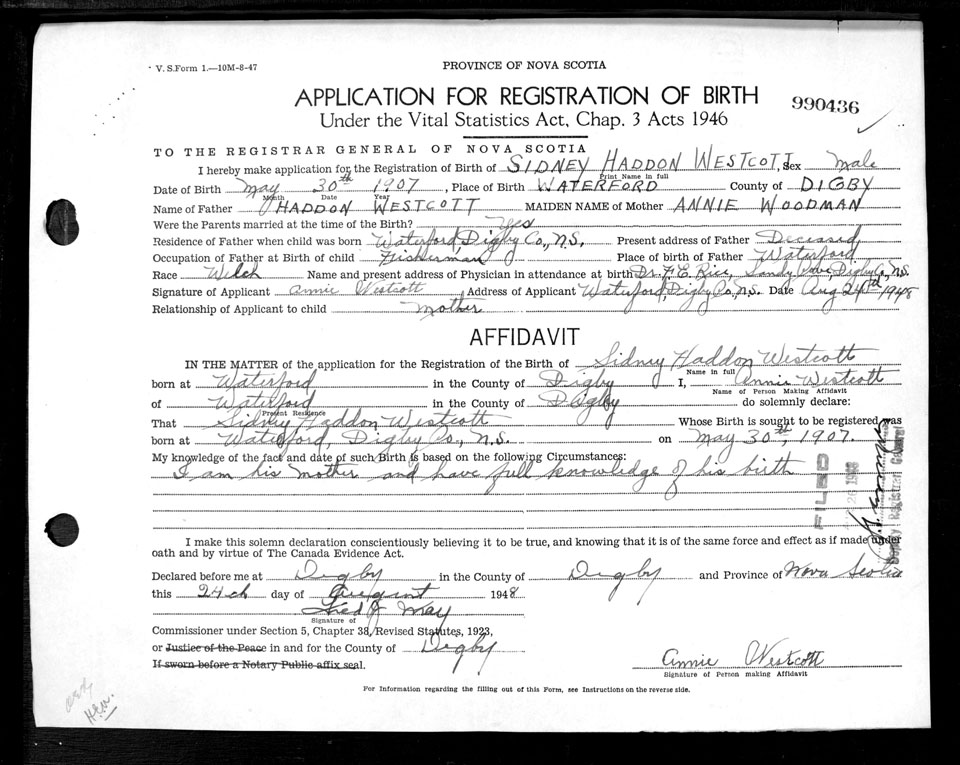 V. S. Form 1.—10M-8-47
PROVINCE OF NOVA SCOTIA
APPLICATION FOR REGISTRATION OF BIRTH
990436
Under the Vital Statistics Act, Chap. 3 Acts 1946
TO THE REGISTRAR GENERAL OF NOVA SCOTIA
I hereby make application for the Registration of Birth of SIDNEY HADDON WESTCOTT, Sex Male
Print Name in full
Date of Birth May 30th 1907, Place of Birth WATERFORD County of DIGBY
Month Date Year
Name of Father HADDON WESTCOTT MAIDEN NAME of Mother ANNIE WOODMAN
Were the Parents married at the time of the Birth? Yes
Residence of Father when child was born Waterford, Digby Co., N.S. Present address of Father Deceased
Occupation of Father at Birth of child Fisherman Place of birth of Father Waterford
Race Welch Name and present address of Physician in attendance at birth Dr. F. E. Rice, Sandy Cove, Digby Co., N.S.
Signature of Applicant Annie Westcott Address of Applicant Waterford, Digby Co., N.S. Date Aug 24th 1948
Relationship of Applicant to child Mother
AFFIDAVIT
IN THE MATTER of the application for the Registration of the Birth of Sidney Haddon Westcott
Name in full
born at Waterford in the County of Digby I, Annie Westcott
Name of Person Making Affidavit
of Waterford in the County of Digby do solemnly declare:
Present Residence
That Sidney Haddon Westcott Whose Birth is sought to be registered was
born at Waterford, Digby Co., N.S. on May 30th, 1907.
My knowledge of the fact and date of such Birth is based on the following Circumstances:
I am his mother and have full knowledge of his birth
FILED
26 1948
Deputy Registrar General
I make this solemn declaration conscientiously believing it to be true, and knowing that it is of the same force and effect as if made under
oath and by virtue of The Canada Evidence Act.
Declared before me at Digby in the County of Digby and Province of Nova Scotia
this 24th day of August 1948
Fred J May
Signature of
Commissioner under Section 5, Chapter 38, Revised Statutes, 1923,
or Justice of the Peace in and for the County of Digby
If sworn before a Notary Public affix seal.
Annie Westcott
Signature of Person making Affidavit
For Information regarding the filling out of this Form, see Instructions on the reverse side.